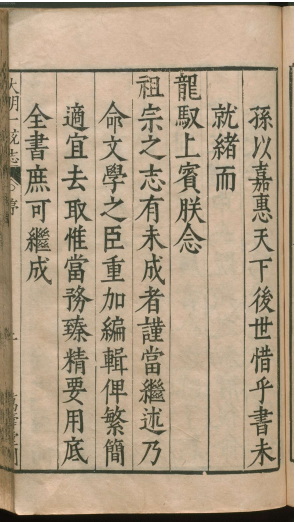 孫以嘉惠天下後世惜乎書未
就緒而
龍馭上賓朕念
祖宗之志有未成者謹當繼述乃
命文學之臣重加編輯俾繁簡
適宜去取惟當務臻精要用底
全書庶可繼成
大明一統志 序